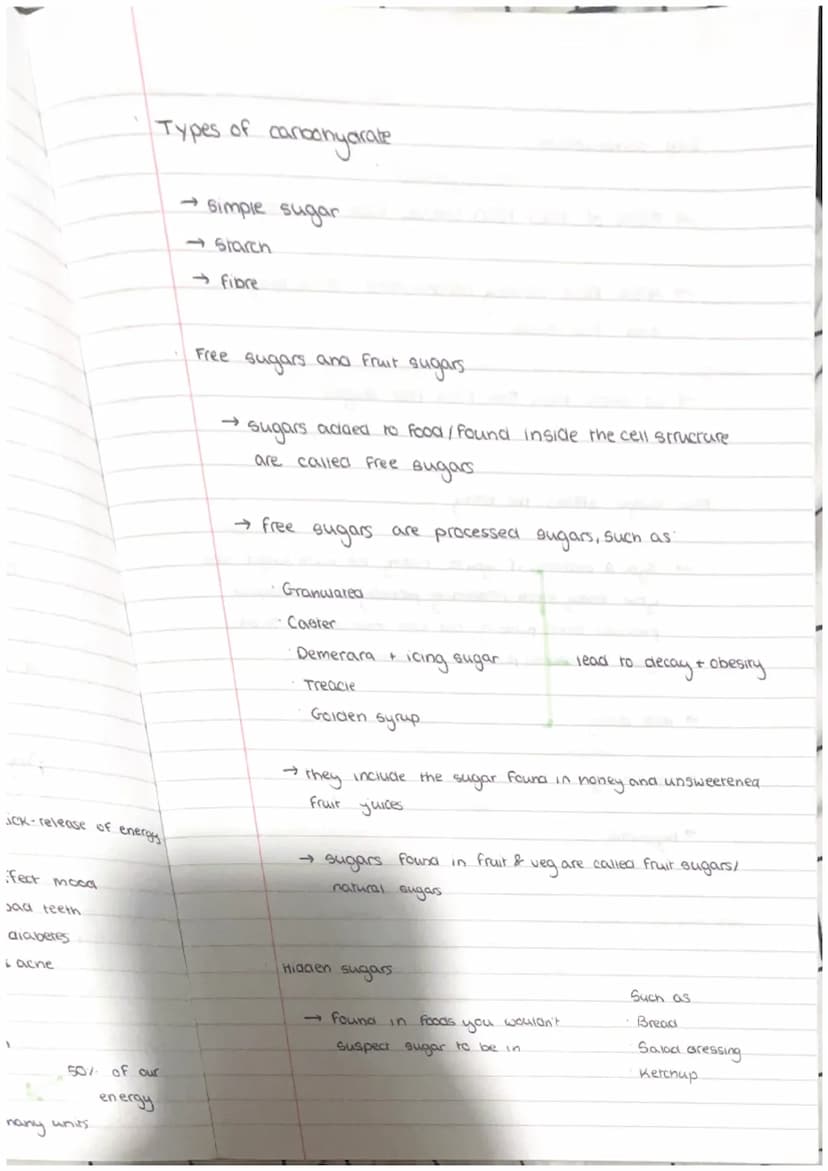 Types of carbohydrate
→ simple sugar
→ Starch
→ fibre
Free sugars and fruit sugars
→ sugars added to food/found inside the cell structure
are called free sugars
→ free sugars are processed sugars, such as
· Granulated
· Caster
· Demerara + icing sugar
· Treacle
· Golden syrup
lead to decay + obesity
→ they include the sugar found in honey and unsweetened
fruit juices
→ sugars found in fruit & veg are called fruit sugars/
natural sugars
Hidden sugars
→ found in foods you wouldn't
suspect sugar to be in
Such as
· Bread
· Salad dressing
· Ketchup
ick-release of energy
fect mood
bad teeth
diabetes
& acne
50% of our
energy
many units